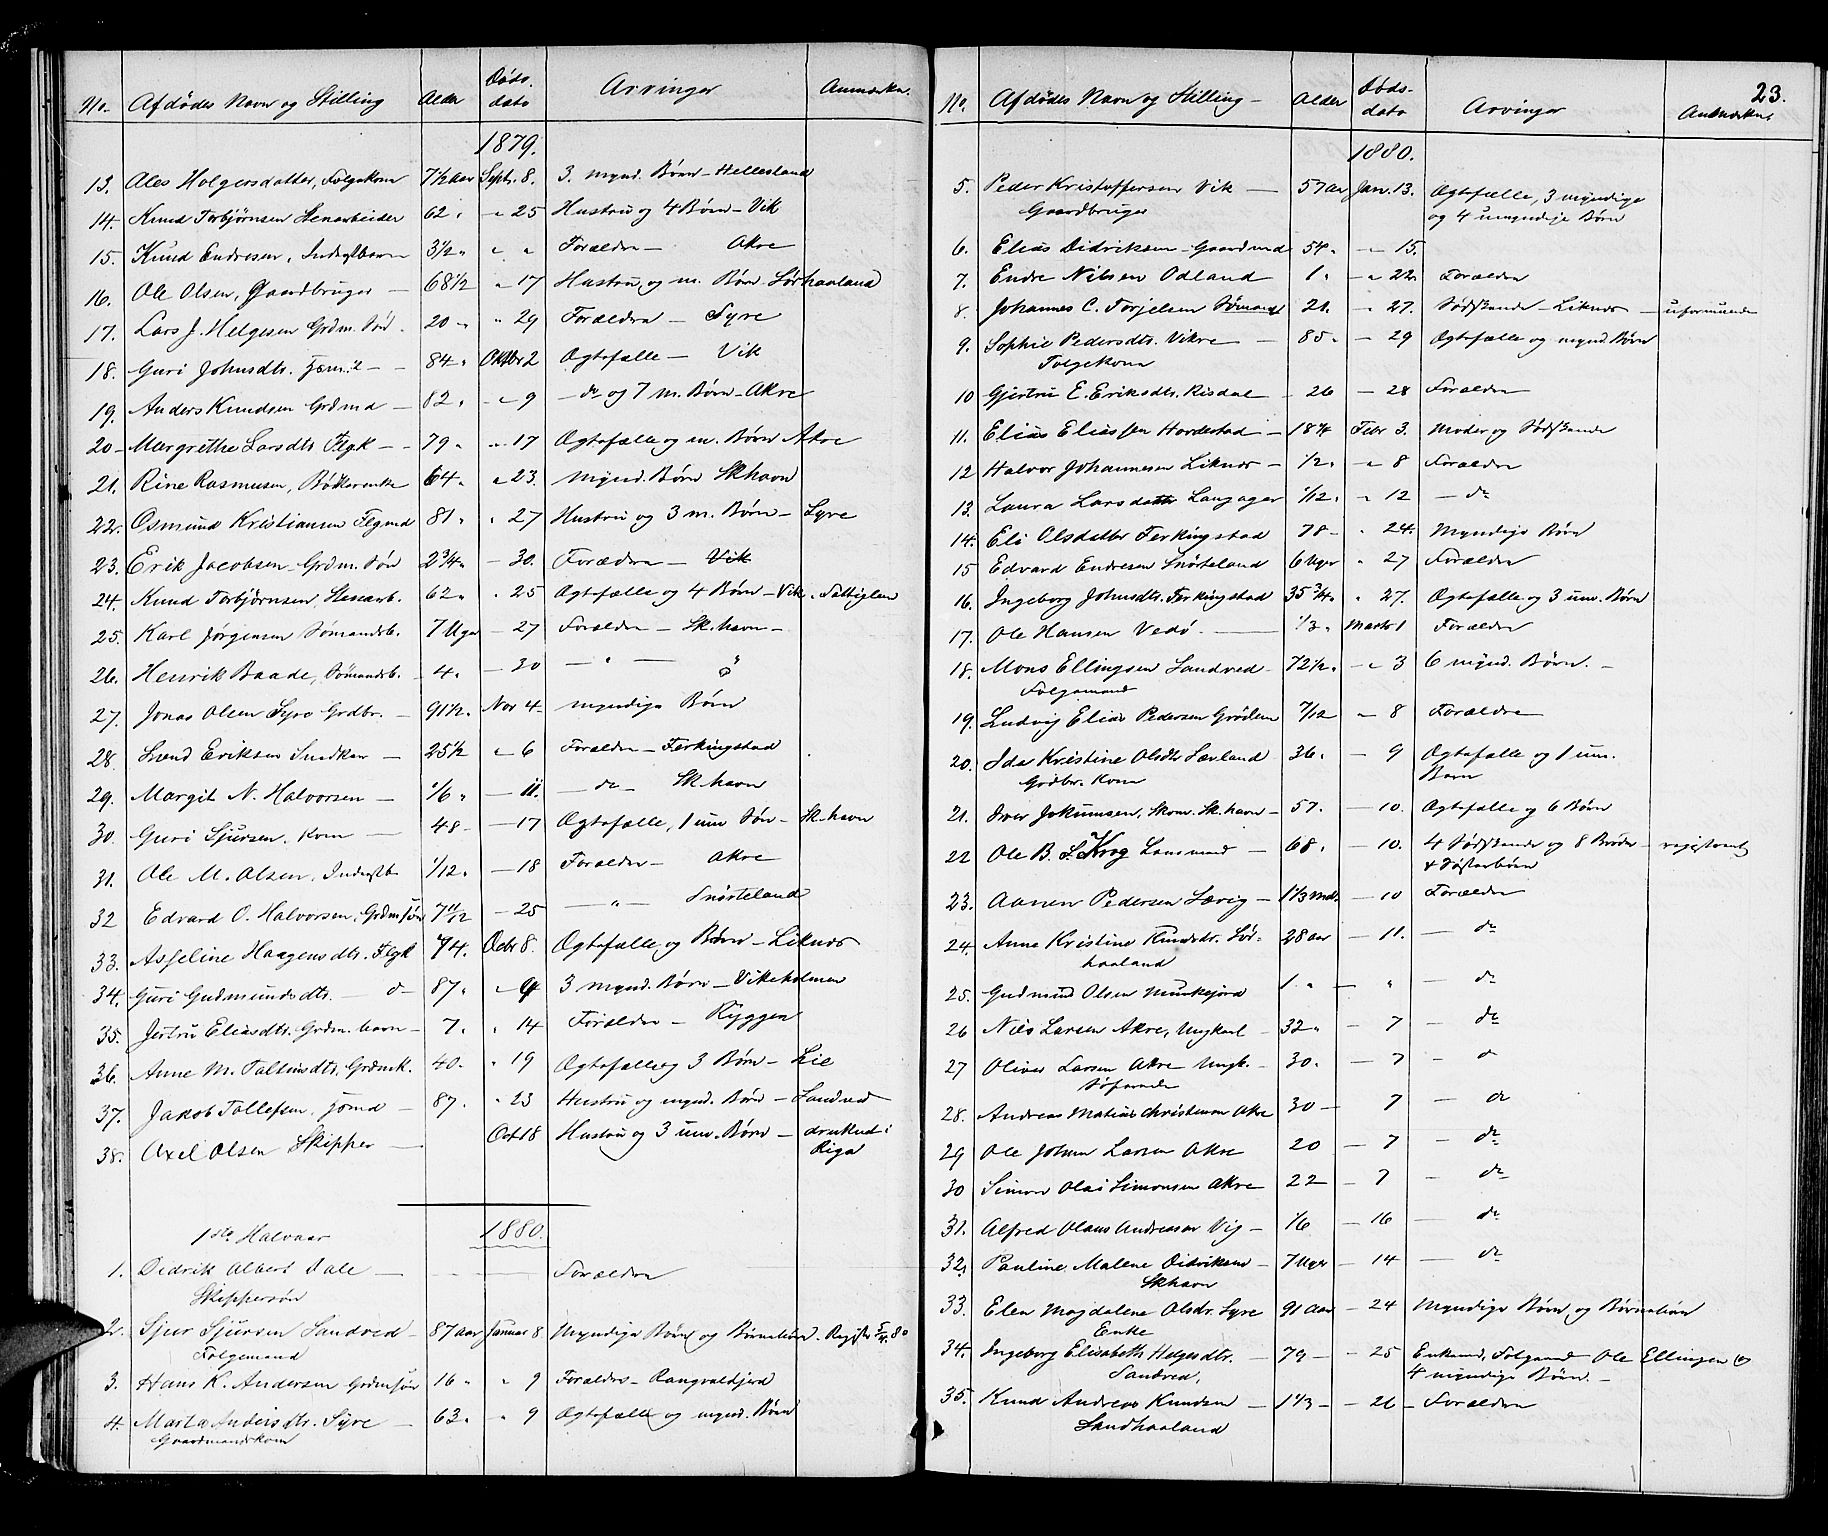 No. Afdødes Navn og Stilling Alder Døds- dato Arvinger Anmærkn.
1879.
13. Ales Holgersdatter, Folgekone 71½ aar Septr. 8. 3. mynd. Børn - Hellesland
14. Knud Torbjørnsen Stenarbeider 62 " " 25 Hustru og 4 Børn - Vik
15. Knud Endresen, Inderstbarn 3½ " " " Forældre - Akre
16. Ole Olsen, Gaardbruger - 68½ " 17 Hustru og m. Børn Sørhaaland
17. Lars J. Helgesen Grdm. Søn - 20 " " 29 Forældre - Syre
18. Guri Johnsdtr. - - 84 " Oktbr 2 Ægtefælle - Vik
19. Anders Knudsen Grdmd - 82 " " 9 - do og 7 m. Børn - Akre
20 - Margrethe Larsdtr Flgk - - 79 " " 17 Ægtefælle og m. Børn Akre
21. Rine Rasmusen, Bødkerenke 64 " " 23. mynd. Børn Skhavn
22. Osmund Kristiansen Flgmd 81 " " 27 Hustru og 3 m. Børn - Syre
23. Erik Jacobsen - Grdm. Søn 2¾ " - 30. Forældre - Vik
24. Knud Torbjørnsen, Stenarb. 62 " " 25 Ægtefælle og 4 Børn - Vik. Fattiglem
25. Karl Jørgensen Sømandsb. 7 Uger - 27 Forældre - Sk.havn -
26. Henrik Baade, Sømandsb. 4. - 30 - " - "
27. Jonas Olsen Syre Grdbr. - 91½ " Nov 4 - myndige Børn
28. Svend Eriksen Snedker - 25½ " 6 Forældre - Ferkingstad
29. Margit N. Halvorsen - 1/6 " - 11. - do - Sk.havn
30. Guri Sjursen, Kone - 48 - - 17 Ægtefælle, 1 um Søn - Sk.havn
31. Ole M. Olsen, Inderstb 1/12 " - 18 Forældre - Akre
32 Edvard O. Halvorsen, Grdmsøn 7 11/12 - 25 - " - Snørteland
33. Asseline Haagensdtr. Flgk 74. Decbr 8. Ægtefælle og Børn - Liknes
34. Guri Gudmundsdtr. - do - 87. " 9 3 mynd. Børn - Vikeholmen
35. Jertru Eliasdtr. Grdm. barn - 7. " 14 Forældre - Ryggen
36. Anne M. Tallinsdtr. Grdmk. 40. " 19 Ægtefælle og 3 Børn - Lie
37. Jakob Tollefsen, - 87. " 23 Hustru og mynd. Børn - Sandved
38. Axel Olsen Skipper - Octbr 18 Hustru og 3 um. Børn - druknet i
Riga
1ste Halvaar 1880.
1. Didrik Albert Dale - Forældre
Skippersøn
2. Sjur Sjursen Sandved - 87 aar Januar 8 Myndige Børn og Børnebørn. Registr 5/4. 80
Folgemand
3. Hans K. Andersen Grdmsøn 16 " " 9 Forældre - Rangvaldjord
4. Marta Andersdtr. Syre - 63 " " 9 Ægtefælle og mynd. Børn
Gaardmandskone
23.
No. Afdødes Navn og Stilling - Alder Døds- dato Arvinger Anmærkn.
1880.
5. Peder Kristoffersen Vik - 57 aar Jan. 13. Ægtefælle, 3 myndige
Gaardbruger og 4 umyndige Børn
6. Elias Didriksen - Gaardmd 54 " - " 15.
7. Endre Nilsen Odland 1 " - " 22 Forældre
8. Johannes C. Torjelsen Sømand 21. " 27. Sødskende - Liknes - uformuende
9. Sophie Pedersdtr. Vikre - 85. - 29 Ægtefælle og mynd. Børn
Folgekone
10 Gjertru E. Eriksdtr. Risdal - 26 - 28 Forældre
11. Elias Eliassen Hordestad - 18¾ Febr 3. Moder og Sødskende
12 Halvor Johannesen Liknes - ½ " - " 8 Forældre
13. Laura Larsdatter Langager 1/12 " " 12 - do
14. Eli Olsdatter Ferkingstad 78 - " 24. Myndige Børn
15 Edvard Endresen Snørteland 6 Uger " 27 Forældre
16. Ingeborg Johnsdtr. Ferkingstad 35¾ " " 27. Ægtefælle og 3 um. Børn
17. Ole Hansen Vedø. - 1/3 " Marts 1 Forældre
18. Mons Ellingsen Sandved - 72½ " - " 3 6 mynd. Børn. -
Folgemand
19. Ludvig Elias Pedersen Grødem 7/12 - 8 Forældre
20. Ida Kristine Olsdtr Sævland 36. - 9 Ægtefælle og 1 um.
Grdbr. Kone Barn
21. Iver Jokumsen, Skom. Sk.havn - 57. - 10. Ægtefælle og 6 Børn
22 Ole B. S. Krog Lensmand - 68. - 10. 4 Sødskende og 8 Broder - registreret
& Søsterbørn
23. Aanen Pedersen Sævig - 1 1/3 Md. - 10 Forældre
24. Anne Kristine Knudsdtr. Sør- 28 aar - 11. - do
haaland
25. Gudmund Olsen Munkejord 1. " - " - do
26 Nils Larsen Akre, Ungkarl - 32 " - 7 - do
27 Oliver Larsen Akre Ungk. - 30. - 7 - do
Søfarende
28. Andreas Matias Christensen Akre 30 - 7 - do
29 Ole Johan Larsen Akre 20 - 7 - do
30 Simon Olai Simonsen Akre 22 - 7 - do
31. Alfred Olaus Andreasen Vig - 1/6 - 16 - do
32. Pauline Malene Didriksen - 7 Uger - 14 - do
Skhavn
33. Elen Magdalene Olsdr. Syre 91 aar - 24 Myndige Børn og Børnebørn
Enke
34. Ingeborg Elisabeth Helgesdtr. - 79 - - 25 Enkemd, Folgemd Ole Ellingsen og
Sandved. 4 myndige Børn. -
35. Knud Andreas Knudsen - 1 1/3 - - 26 - Forældre
Sandhaaland